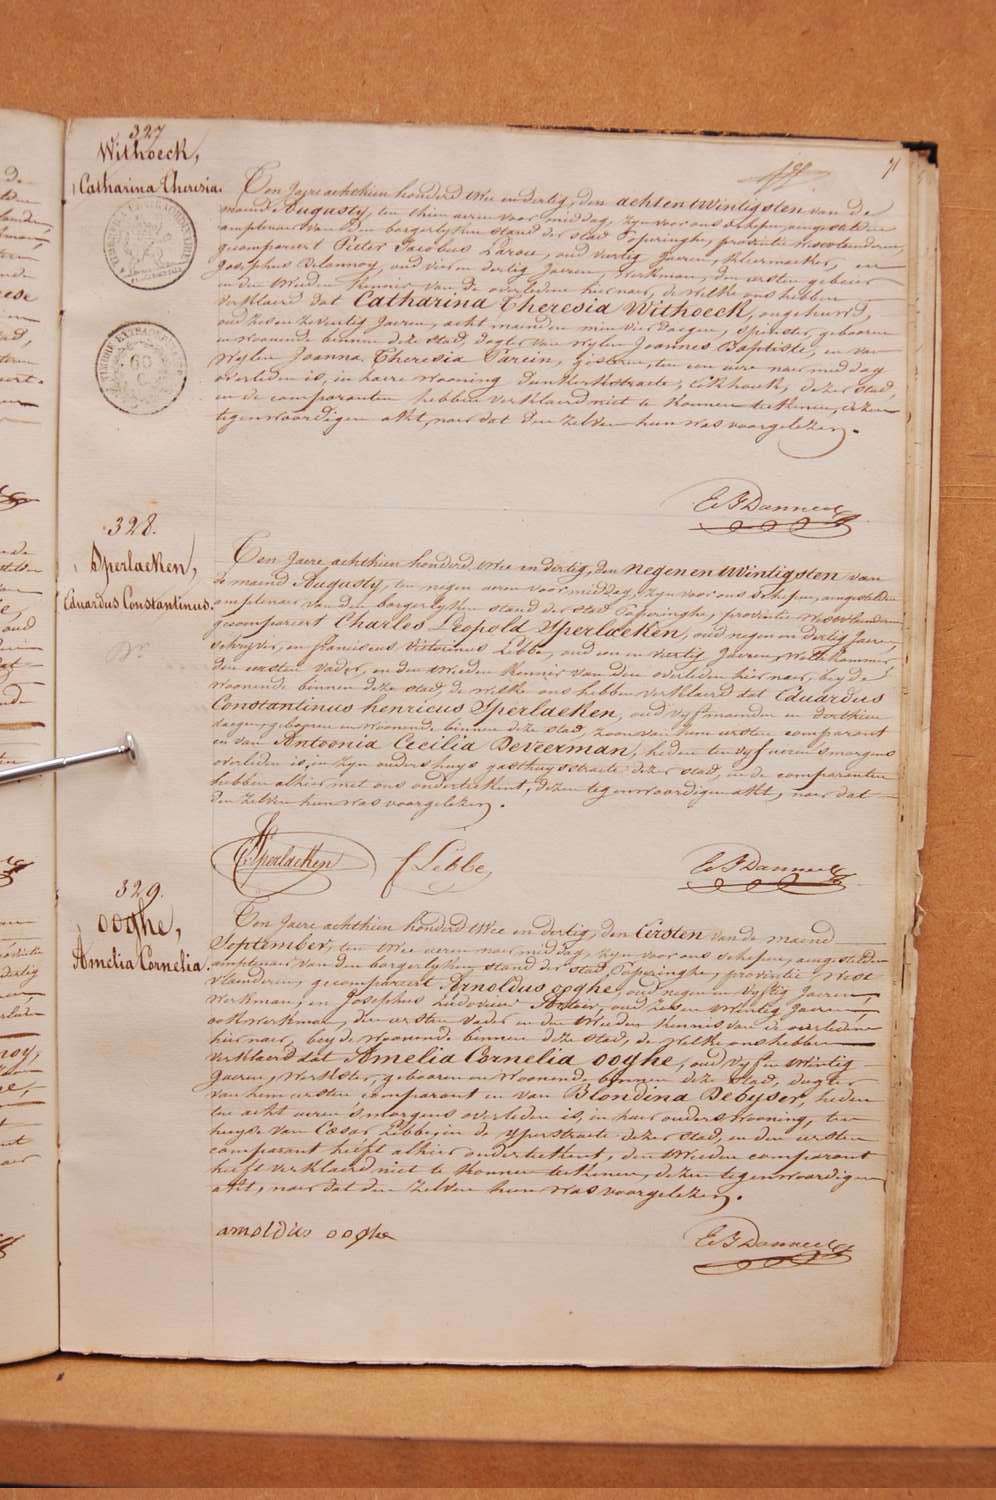 327
Withoeck,
Catharina Theresia.
71
Ten Jaere achthien honderd twee en dertig, den achten twintigsten van de
maend Augusty, ten thien ueren voor middag, zyn voor ons schepen, aengestelden
amptenaer van den borgerlyken stand der stad Poperinghe, provintie Westvlaenderen,
gecompareert Pieter Jacobus, oud vertig Jaeren, kleermaeker, en
Josephus Delannoy, oud vier en dertig Jaeren, werkman, den eersten gebuer
en den tweeden kennis van de overledene hiernaer, de welke ons hebben
verklaerd dat Catharina Theresia Withoeck, ongehuwd,
oud zes en zeventig Jaeren, acht maenden min vier daegen, spinster, gebooren
en woonende binnen deze stad, dogter van wylen Joannes Baptiste, en van
wylen Joanna Theresia Parein, gisteren, ten een uere naermiddag
overleden is, in haere wooning Dunkerkstraete, Eekhoek, dezer stad,
en de comparanten hebben verklaerd niet te konnen teekenen, dezen
tegenwoordigen akt, naer dat den zelven hun was voorgelezen.
328.
Sperlaeken,
Eduardus Constantinus.
Ten Jaere achthien honderd twee en dertig, den negen en twintigsten van
de maend Augusty, ten negen ueren voormiddag, zyn voor ons schepen, aengestelden
amptenaer van den borgerlyken stand der stad Poperinghe, provintie Westvlaenderen
gecompareert Charles Leopold Sperlaeken, oud negen en dertig Jaeren,
schryver, en franciscus Victorinus Lebbe, oud een en vertig Jaeren,
den eersten vader, en den tweeden kennis van den overleden hiernaer, beyde
woonende binnen deze stad, de welke ons hebben verklaerd dat Eduardus
Constantinus henricus Sperlaeken, oud vyf maenden en derthien
daegen, gebooren en woonende binnen deze stad, zoon van hem eersten comparant
en van Antoonia Cecilia Deveerman, heden ten vyf ueren smorgens
overleden is, in zyn ouders huys gasthuysstraete dezer stad, en de comparanten
hebben alhier met ons onderteekent, dezen tegenwoordigen akt, naer dat
den zelven hun was voorgelezen.
Sperlaeken f Lebbe
329.
ooghe,
Amelia Cornelia.
Ten Jaere achthien honderd twee en dertig, den Eersten van de maend
September, ten twee ueren naermiddag, zyn voor ons schepen, aengestelden
amptenaer van den borgerlyken stand der stad Poperinghe, provintie West
vlaenderen, gecompareert Arnoldus ooghe, oud negen en vyftig Jaeren,
werkman, en Josephus Ludovicus, oud zes en twintig Jaeren,
ook werkman, den eersten vader en den tweeden kennis van de overledene
hiernaer, beyde woonende binnen deze stad, de welke ons hebben
verklaerd dat Amelia Cornelia ooghe, oud vyf en twintig
Jaeren, werkster, gebooren en woonende binnen deze stad, dogter
van hem eersten comparant en van Blondina Debyser, heden
ten acht ueren smorgens overleden is, in haer ouders wooning, ten
huyze van Cæsar Lebbe, in de yperstraete dezer stad, en den eersten
comparant heeft alhier onderteekent, den tweeden comparant
heeft verklaerd niet te konnen teekenen, dezen tegenwoordigen
akt, naer dat den zelven hun was voorgelezen.
arnoldus ooghe